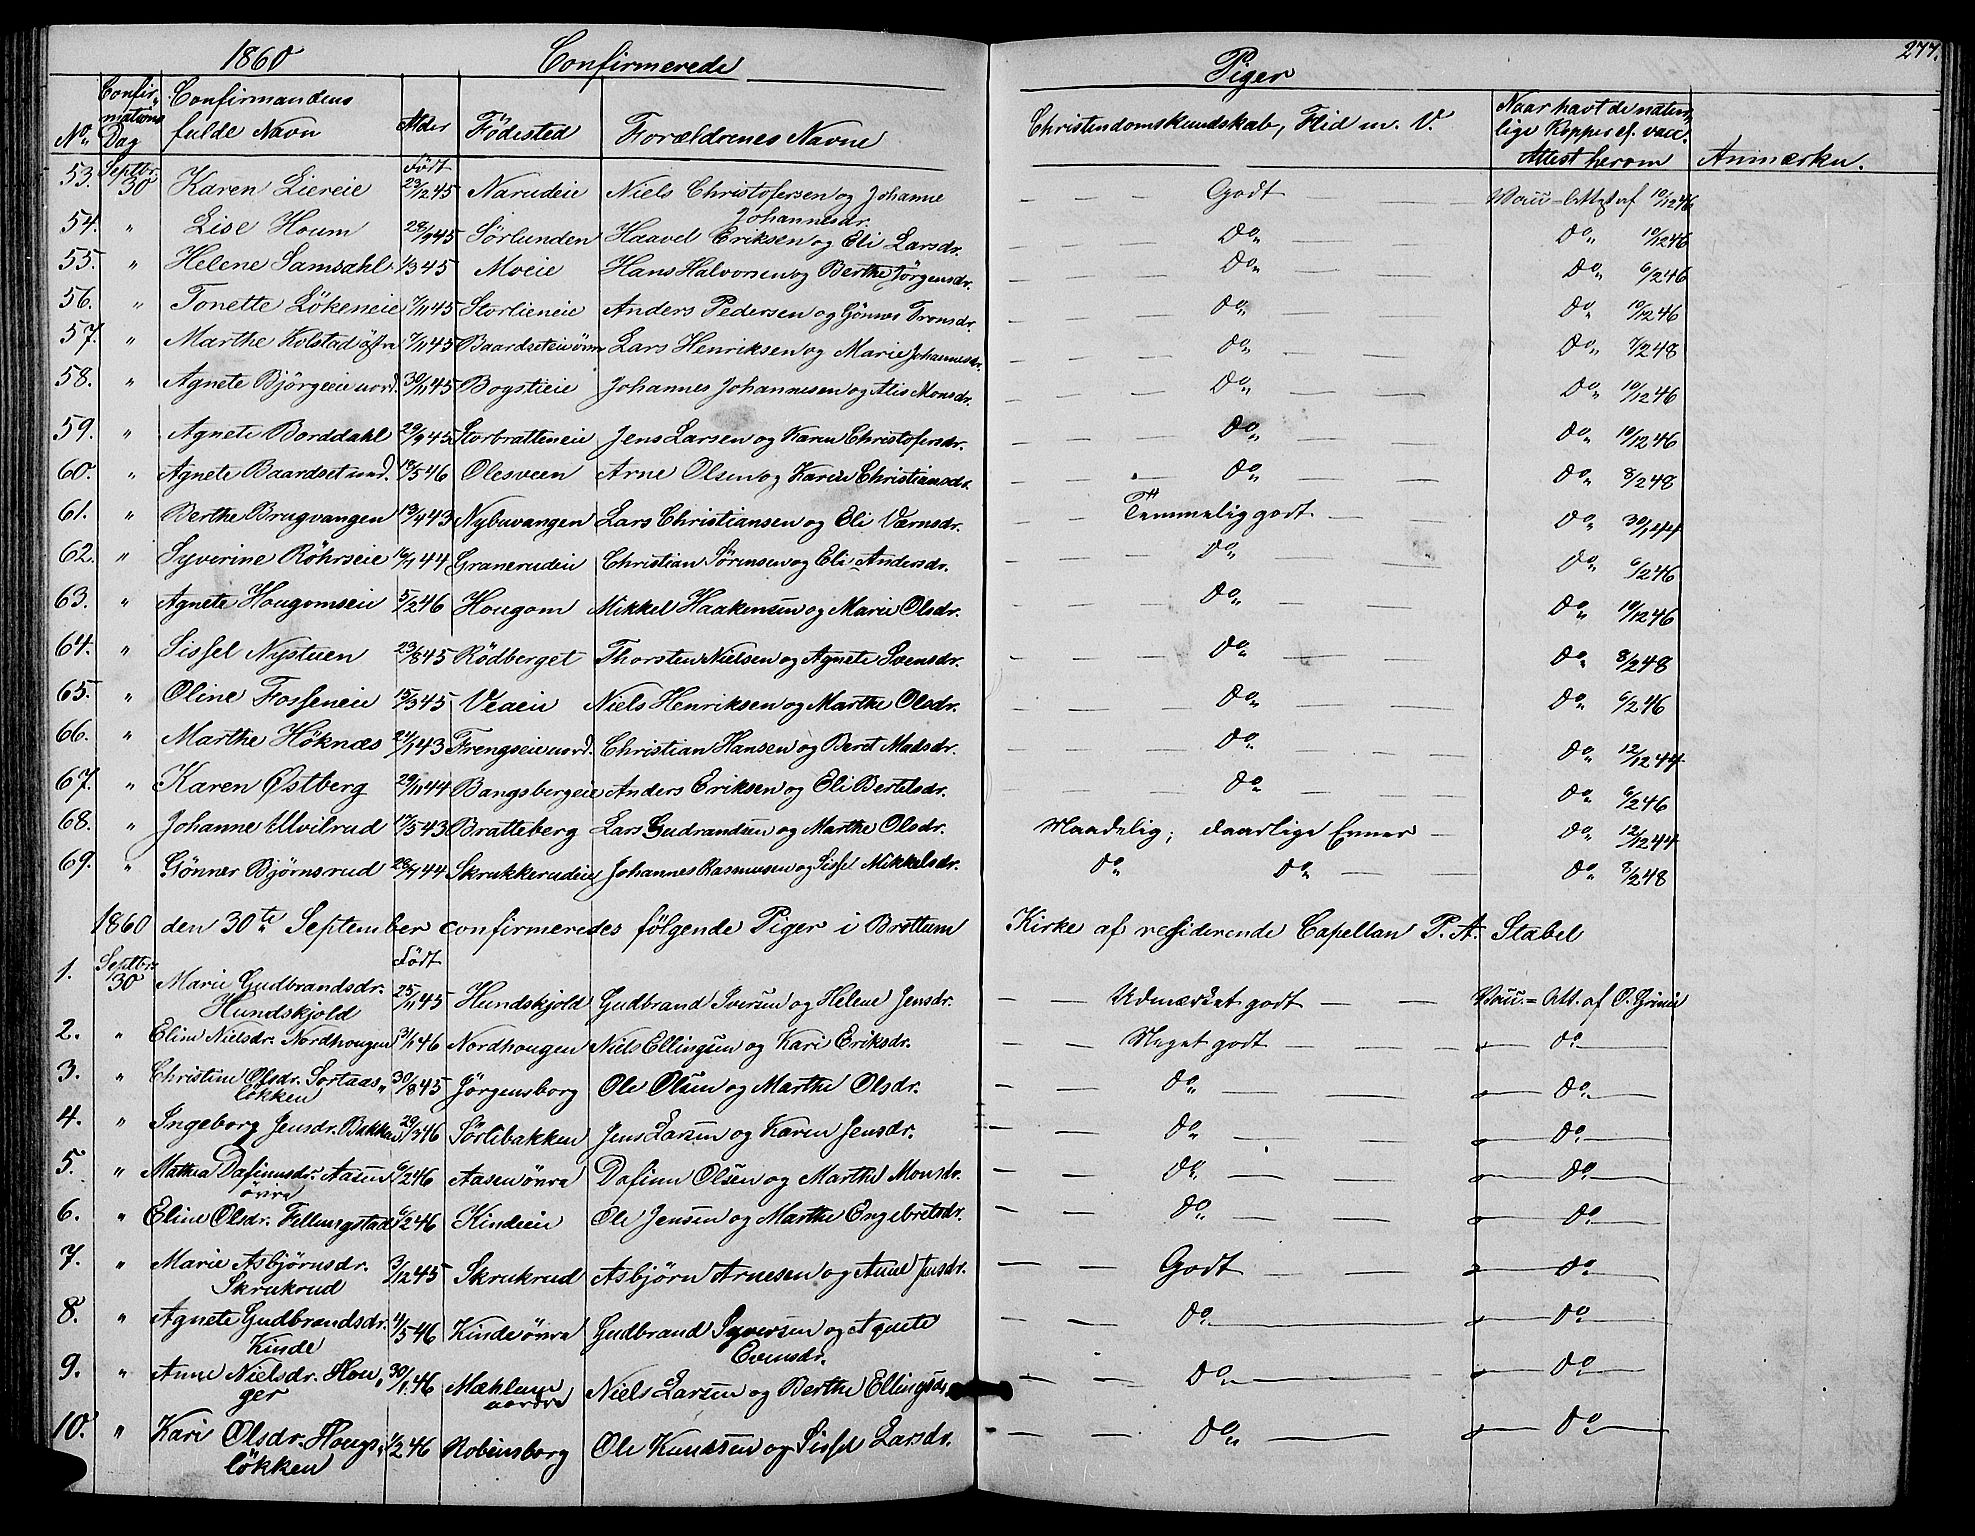 1860 Confirmerede Piger 277.
No. Confirmations Dag Confirmandens fulde Navn Alder Födested Forældrenes Navne Christendomskundskab, Flid m. V. Naar havt de naturlige Kopper el. vacc. Attest herom Anmærkn.
53. Septbr. 30 Karen Liereie Födt 29/12 45 Narudeie Niels Christofersen og Johanne Johannesdr. Godt Vacc.-Attest af 10/12 46
54. " Lise Houm 29/9 45 Sörlunden Haavel Eriksen og Eli Larsdr. Do 10/12 46
55. " Helene Samsahl 1/3 45 Moeie Hans Halvorsen og Berthe Jörgensdr. Do 6/2 46
56. " Tonette Lökeneie 7/11 45 Storlieneie Anders Pedersen og Gönner Tronsdr. Do 10/12 46
57. " Marthe Kolstad östra 7/11 45 Baardseteie övra Lars Henriksen og Marie Johannesdr. Do 7/2 48
58. " Agnete Bjórgeeie nord. 30/1 45 Bogstieie Johannes Johannesen og Alis Monsdr. Do 10/12 46
59. " Agnete Borddahl 29/9 45 Storbratteneie Jens Larsen og Karen Christofersdr. Do 10/12 46
60. " Agnete Baardset nord. 18/5 46 Olesveen Arne Olsen og Karen Christiansdr. Do 8/2 48
61. " Berthe Brugvangen 13/4 43 Nybuvangen Lars Christiansen og Eli Værnsdr. Temmelig godt Do 30/1 44
62. " Syverine Röhrseie 16/1 44 Granerudeie Christian Sörensen og Eli Andersdr. Do Do 6/2 46
63. " Agnete Hougomseie 5/2 46 Hougom Mikkel Haakensen og Marie Olsdr. Do Do 10/12 46
64. " Sissel Nystuen 23/8 45 Rödberget Thorsten Nielsen og Agnete Svensdr. Do Do 8/2 48
65. " Oline Fosseneie 15/3 45 Veaeie Niels Henriksen og Marthe Olsdr. Do Do 6/2 46
66. " Marthe Höknæs 24/1 43 Frengseie nord. Christian Hansen og Beret Madsdr. Do Do 12/12 44
67. " Karen Østberg 29/11 44 Bangsbergeie Anders Eriksen og Eli Bertelsdr. Do Do 6/2 46
68. " Johanne Ulvilrud 17/5 43 Bratteberg Lars Gudrandsen og Marthe Olsdr. Maadelig; daarlige Evner Do 12/12 44
69. " Gönner Bjørnsrud 28/7 44 Skrukkerudeie Johannes Rasmusen og Sissel Mikkelsdr. Do Do Do 8/2 48
1860 den 30te September confirmeredes fölgende Piger i Brottum Kirke af residerende Capellan P. A. Stabel
1. Septbr. 30 Marie Gudbrandsdr. Hundskjold Födt 25/11 45 Hundskjold Gudbrand Iversen og Helene Jensdr. Udmærket godt Vacc.-Att. af O.
2. " Eline Nielsdr. Nordhougen 31/1 46 Nordhougen Niels Ellingsen og Kari Eriksdr. Meget godt Do
3. " Christine Olsdr. Sortaaslökken 30/8 45 Jörgensborg Ole Olsen og Marthe Olsdr. Do Do
4. " Ingeborg Jensdr. Bakken 29/3 46 Sörlibakken Jens Larsen og Karen Jensdr. Do Do
5. " Mathea Dafinnsdr. Aasen övra 6/2 46 Aasen övra Dafinn Olsen og Marthe Monsdr. Do Do
6. " Eline Olsdr. Fellungstad 6/2 46 Kindeeie Ole Jensen og Marthe Engebretsdr. Do Do
7. " Marie Asbjørnsdr. Skrukrud 3/12 45 Skrukrud Asbjörn Arnesen og Anne Jensdr. Godt Do
8. " Agnete Gudbrandsdr. Kinde 4/5 46 Kinde övra Gudbrand Syversen og Agnete Evensdr. Do Do
9. " Anne Nielsdr. Houger 30/1 46 Mæhlum nordre Niels Larsen og Berthe Ellingsdr. Do Do
10. " Kari Olsdr. Hougslökken 1/2 46 Robensborg Ole Knutsen og Sissel Larsdr. Do Do